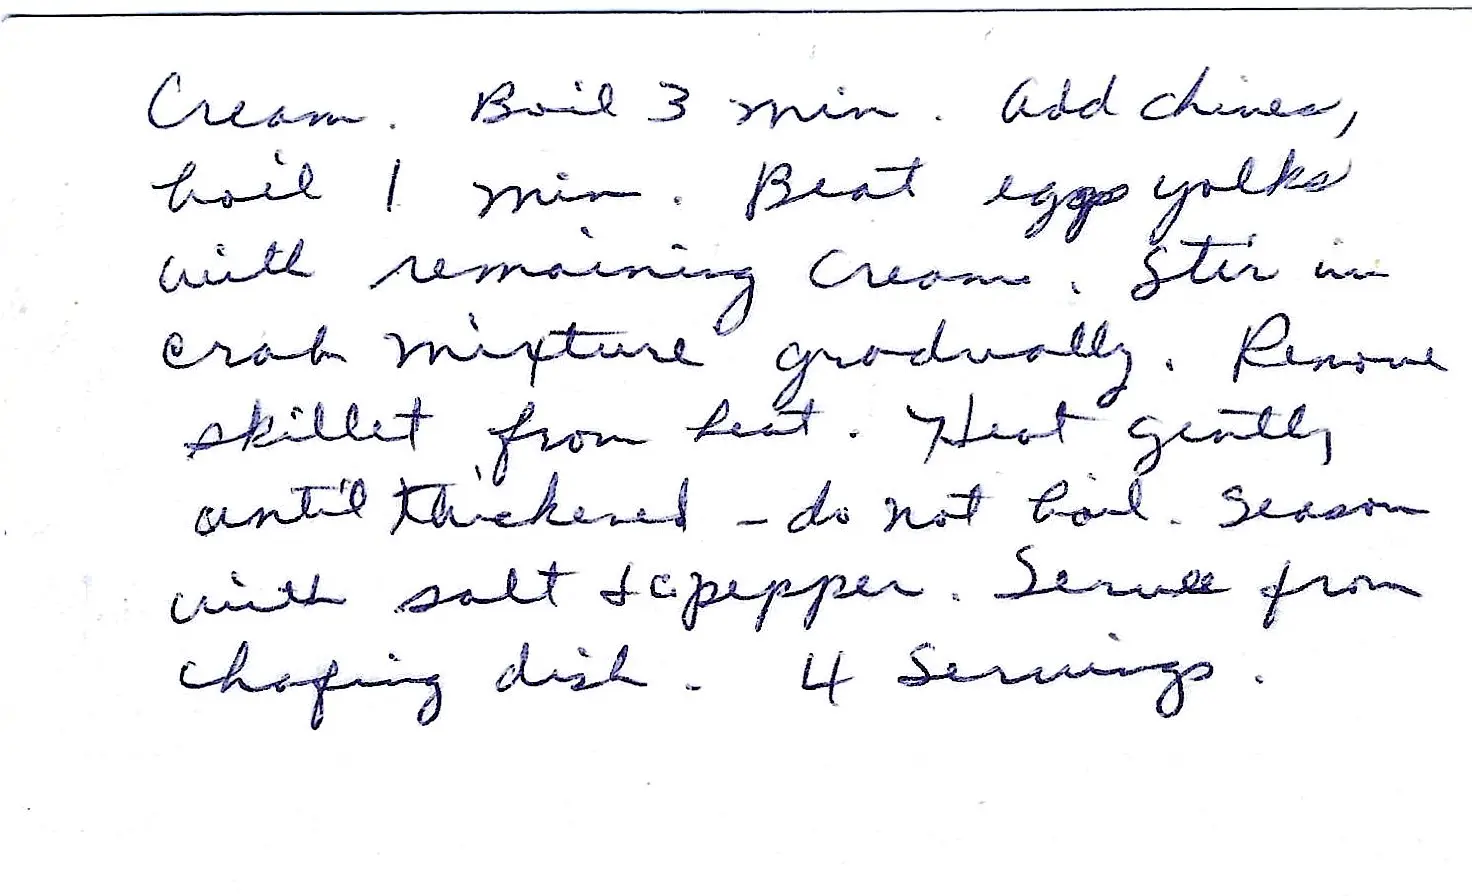 Cream. Boil 3 min. Add chives,
boil 1 min. Beat egg yolks
with remaining cream. Stir in
crab mixture gradually. Remove
skillet from heat. Heat gently
until thickened - do not boil. Season
with salt & c pepper. Serve from
chafing dish. 4 Servings.